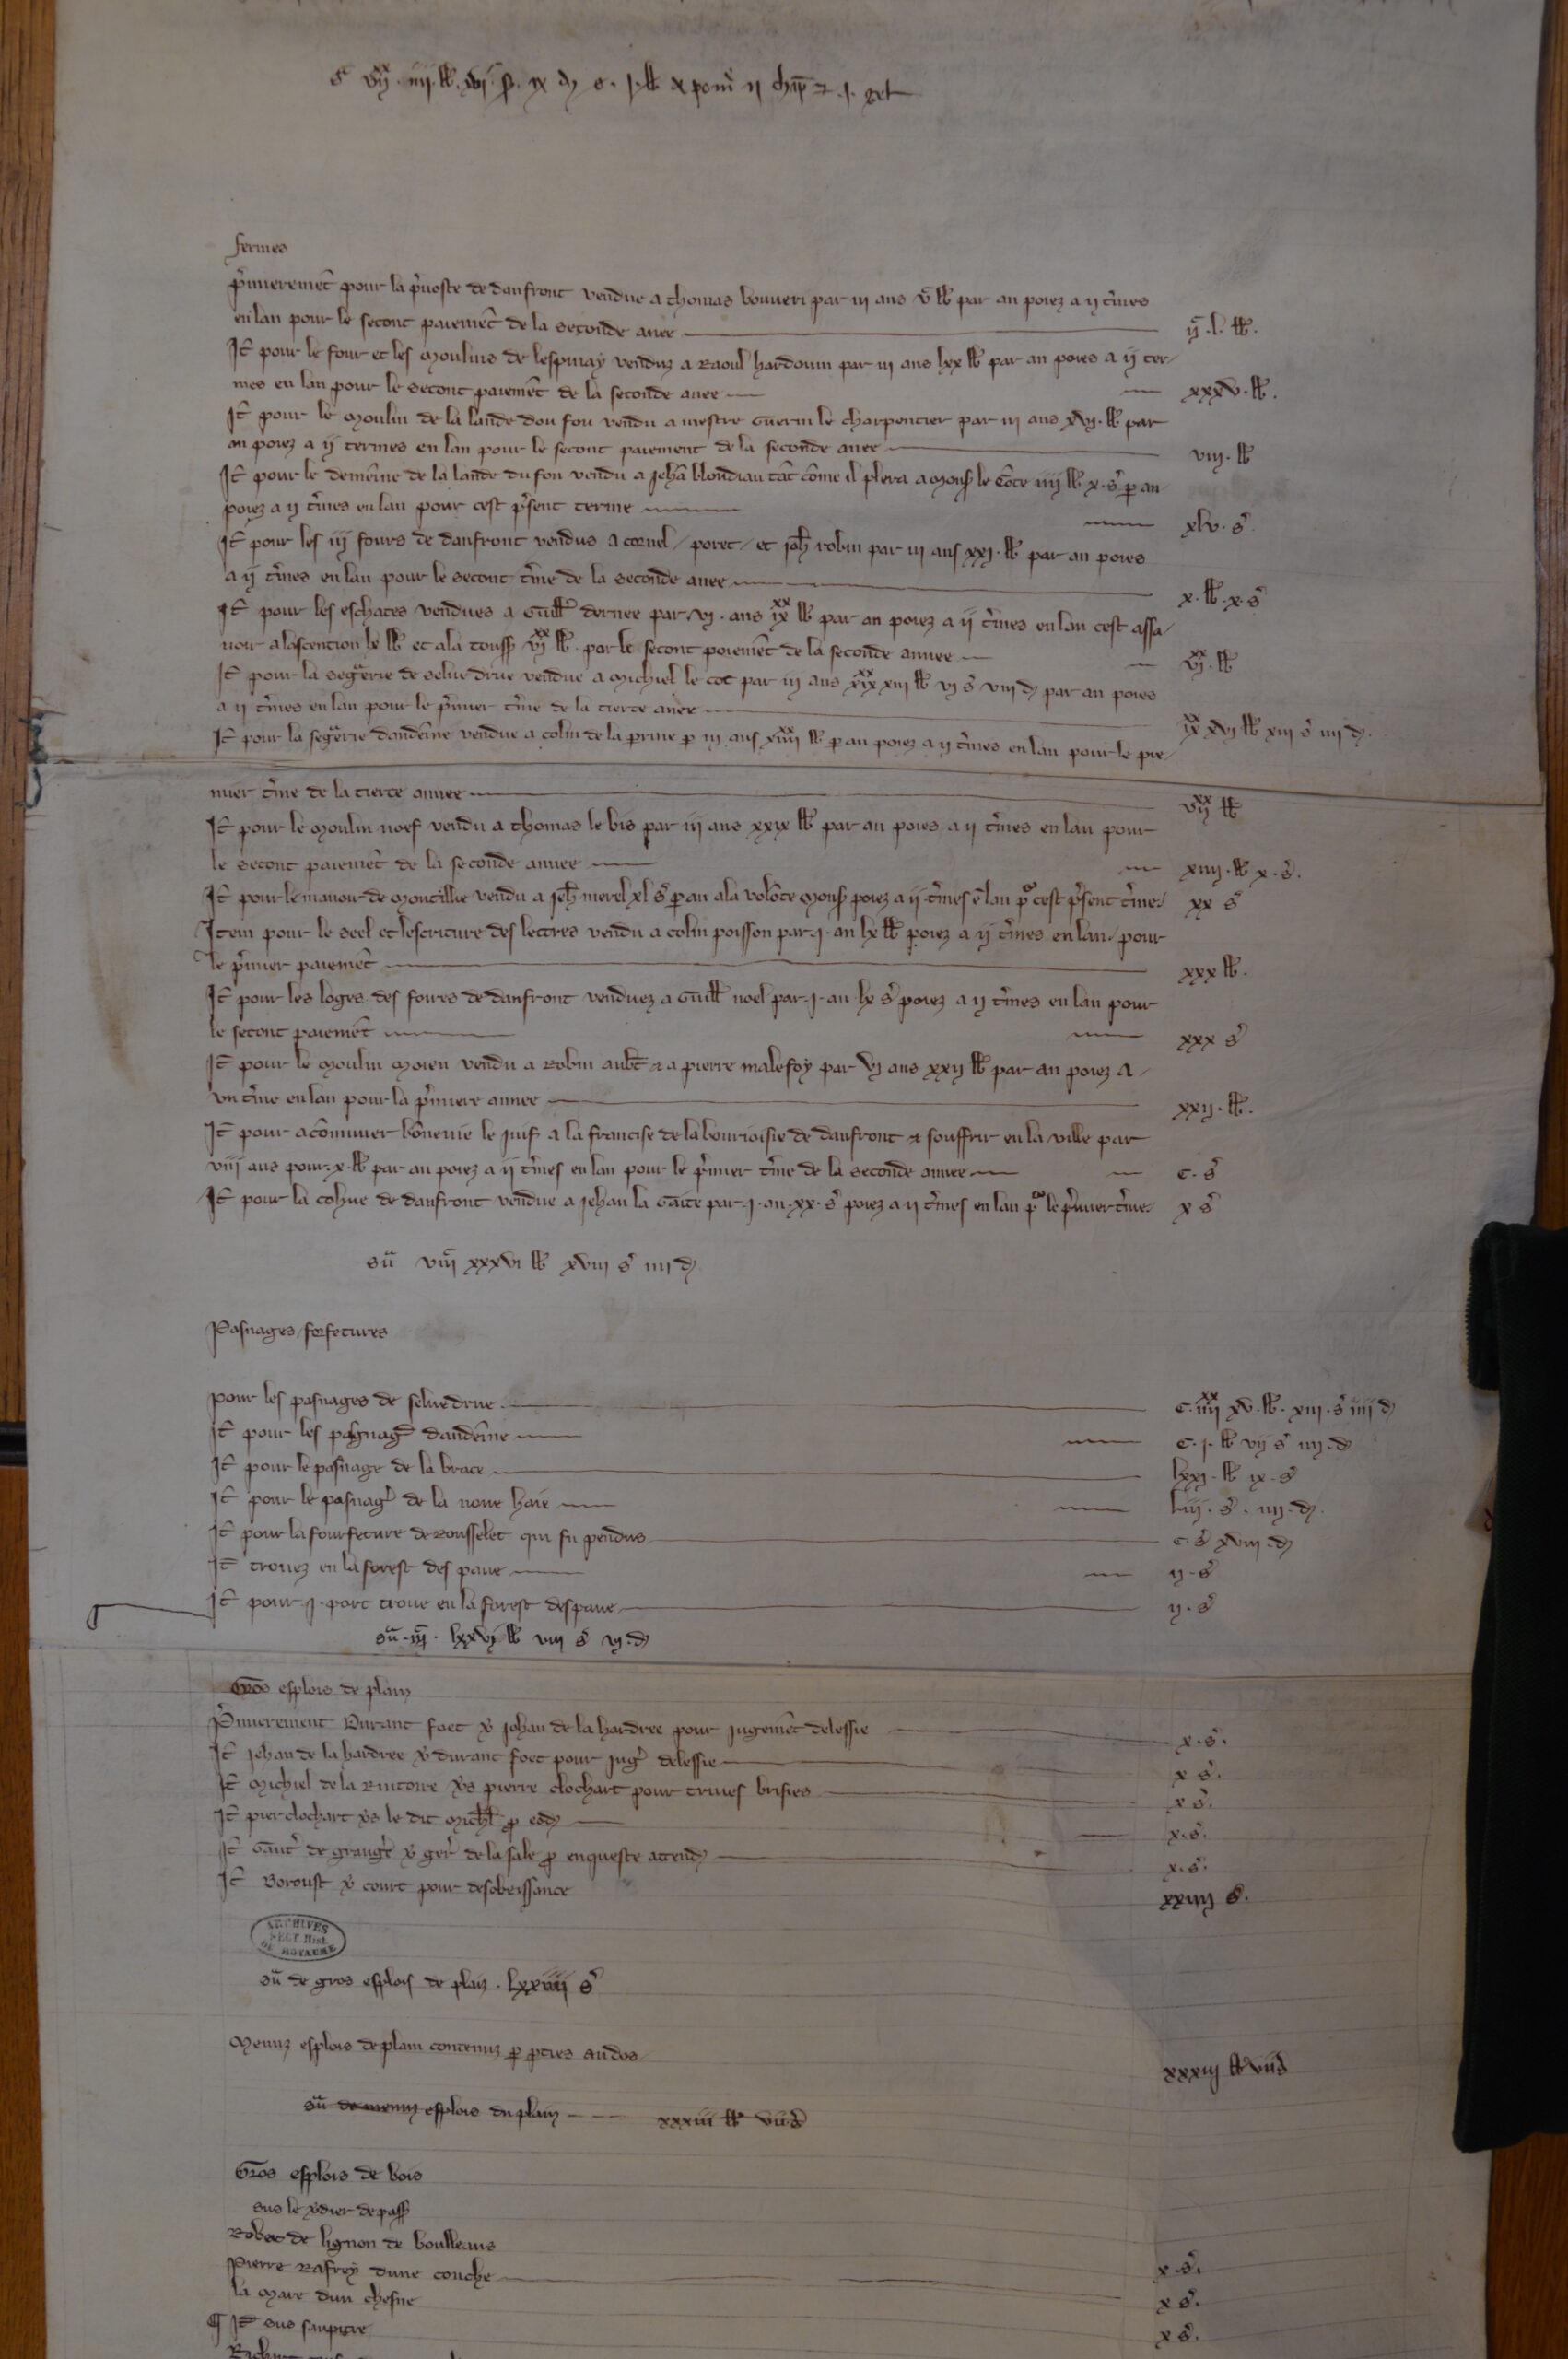 fermes
p'mieremēt pour la p'voste de danfront vendue a thomas bouveri par iii ans vᶜ ll' par an poiez a ii t'mes
en lan pour le secont paiemēt de la seconde anee iiᶜ . l . ll'.
It' pour le four et les moulins de lespinay venduz a Raoul hardouin par iii ans lxx ll' par an poies a ii ter-
mes en lan pour le secont paiemēt de la seconde anee xxxv . ll'.
It' pour le moulin de la lande dou fou vendu a mestre Guerin le charpentier par iii ans xvi . ll' par
an poiez a ii termes en lan pour le secont paiement de la seconde anee viii . ll'
It' pour le demēine de la lande du fou vendu a jehā blondiau tāt cōme il plera a mons' le cōte iiii ll' x . s' p an
poiez a ii t'mes en lan pour cest p'sent terme xlv . s'
It' pour les iii fours de danfront vendus a cornel / poret / et joh' robin par iii ans xxi . ll' par an poies
a ii t'mes en lan pour le secont t'me de la seconde anee x . ll' . x . s'
It' pour les eschaces vendues a Guill' dernee par . vi . ans ixˣˣ ll' par an poiez a ii t'mes en lan cest assa-
voir a lascention lx ll' et a la touss' viˣˣ ll' . por le secont poiemēt de la seconde annee viˣˣ . ll'
It' pour la segrerie de selve drue vendue a michiel le coc par iii ans xixˣˣ xiii ll' vi s' viii d' par an poies
a ii t'mes en lan pour le p'mier t'me de la tierce anee ixˣˣ xvi ll' xiii s' iiii d'.
It' pour la segrerie dandeine vendue a colin de la prime p iii ans xiiiiˣˣ ll' p an poiez a ii t'mes en lan pour le pre-
mier t'me de la tierce annee viiˣˣ ll'
It' pour le moulin noef vendu a thomas le bis par iii ans xxix ll' par an poies a ii t'mes en lan pour
le secont paiemēt de la seconde annee xiiii . ll' x . s'.
It' pour le manoir de moncillie vendu a jeh' merel xl s' p an a la volōte mons' poiez a ii t'mes ē lan po' cest p'sent t'me xx s'
Item pour le seel et lescriture des lettres vendu a colin poisson par . i . an lx ll' poiez a ii t'mes en lan / pour
le p'mier paiemēt xxx ll'.
It' pour les loges des foires de danfront venduez a Guill' noel par . i . an lx s' poiez a ii t'mes en lan pour
le secont paiemēt xxx s'
It' pour le moulin moien vendu a Robin aub't & a pierre malefoy par vi ans xxii ll' par an poiez a
un t'me en lan pour la p'miere annee xxii . ll'.
It' pour acōmuner bōnevie le juif a la francise de la bourjoisie de danfront & souffrir en la ville par
viii ans pour . x . ll' par an poiez a ii t'mes en lan pour le p'mier t'me de la seconde annee c . s'
It' pour la cohue de danfront vendue a jehan la Gaite par . i . an . xx . s' poiez a ii t'mes en lan po' le p'mier t'me x s'
sū viiiᶜ xxxvi ll' xviii s' iiii d'
Pasnages / forfetures
pour les pasnages de selvedrue c . iiiiˣˣ xv . ll' . xiii . s' iiii d'
It' pour les pasnag' dandeine c . i . ll' vii s' iiii . d'
It' pour le pasnage de la brace lxxi . ll' ix . s'
It' pour le pasnag' de la noue haie liii . s' . iiii . d'.
It' pour la fourfeture de Rousselet qui fu pendus c . s' xviii . d'
It' trouez en la forest des pave ii . s'
It' pour . i . porc trove en la forest despave ii . s'
sū . iiiᶜ . lxxvi ll' viii s' vi . d'
Gros esplois de plain
P'mierement Durant foet v' Johan de la hardree pour jugemēt delessie x . s'.
It' jehan de la hardree v' durant foet pour jug' delessie x s'.
It' Michiel de la Rintoire v's pierre clochart pour trives brisies x s'.
It' pier clochart v's le dit Mich'l p eod' x . s'.
It' Gaut' de grang' v' ger' de la sale p enqueste attend' x . s'.
It' Boroust v' court pour desobeissance xxiiii s'.
ARCHIVES
SECT. Hist.
DU ROYAUME
sū de gros esplois de plain . lxxiiii s'
Menuz esplois de plain contenuz p pties au dos xxxiii ll' vii s'
sū de menuz esplois du plain xxxiii ll' vii s'
Gros esplois de bois
sus le v'dier de pass'
Robert de lignon de boulleaus x . s'.
Pierre Rafrey dune couche x s'.
la mare dun chesne x s'.
¶ It' sus